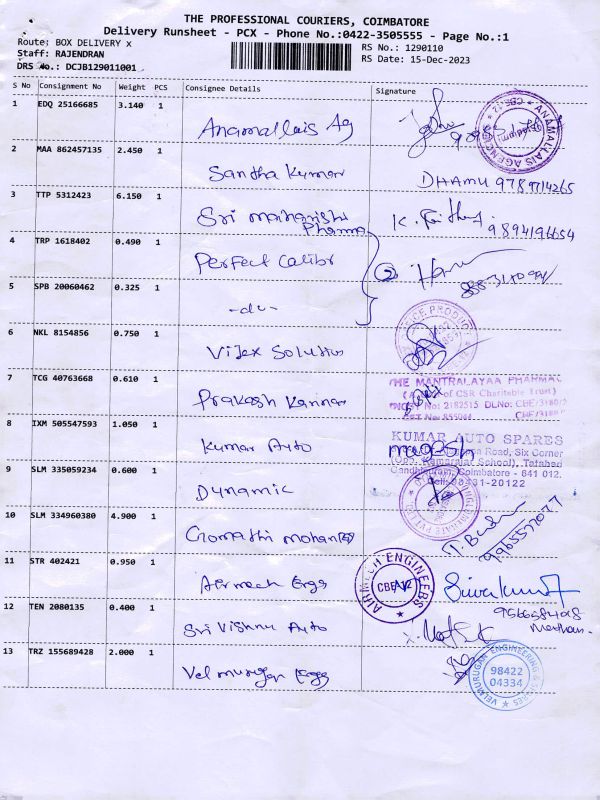 THE PROFESSIONAL COURIERS, COIMBATORE
Delivery Runsheet - PCX - Phone No.:0422-3505555 - Page No.:1
Route: BOX DELIVERY x
RS No.: 1290110
Staff: RAJENDRAN
RS Date: 15-Dec-2023
DRS No.: DCJB129011001
S No Consignment No Weight PCS Consignee Details Signature
1 EDQ 25166685 3.140 1
Anamallais Ag
ANAMALLAIS AGENCIES
2 MAA 862457135 2.450 1
Santha Kumar
DHAMU 9789714265
3 TTP 5312423 6.150 1
Sri maharishi
Pharma
9894196654
4 TRP 1618402 0.490 1
Perfect Calibr
5 SPB 20060462 0.325 1
-do-
6 NKL 8154856 0.750 1
Vijex Solution
7 TCG 40763668 0.610 1
Prakash Kannan
THE MANTRALAYAA PHARMAC
of CSR Charitable Trust)
No: 2182515 DLNo: CBE/3180/
8 IXM 505547593 1.050 1
Kumar Auto
magesh
KUMAR AUTO SPARES
Road, Six Corner
School), Tatabad
Gandhipuram, Coimbatore - 641 012.
Cell: 98431-20122
9 SLM 335059234 0.600 1
Dynamic
10 SLM 334960380 4.900 1
Gomathi mohan
9965577077
11 STR 402421 0.950 1
Airmech Engs
AIRMECH ENGINEERS
CBE-12
Sivakumar
12 TEN 2080135 0.400 1
Sri Vishnu Auto
13 TRZ 155689428 2.000 1
Velmurugan Engg
VELMURUGAN ENGINEERING & SPARES
98422
04334